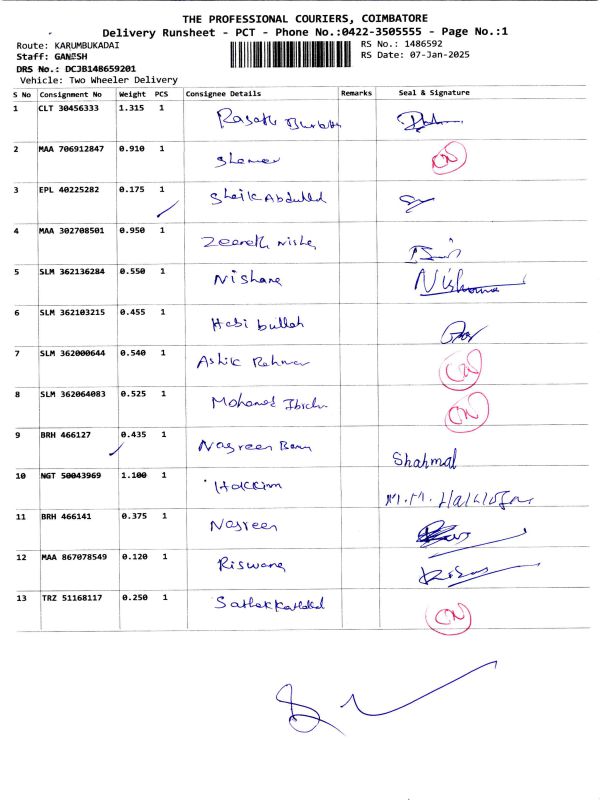 THE PROFESSIONAL COURIERS, COIMBATORE
Delivery Runsheet - PCT - Phone No.:0422-3505555 - Page No.:1
Route: KARUMBUKADAI RS No.: 1486592
Staff: GANESH RS Date: 07-Jan-2025
DRS No.: DCJB148659201
Vehicle: Two Wheeler Delivery
S No Consignment No Weight PCS Consignee Details Remarks Seal & Signature
1 CLT 30456333 1.315 1
2 MAA 706912847 0.910 1 CN
3 EPL 40225282 0.175 1 Sheik Abdulld
4 MAA 302708501 0.950 1
5 SLM 362136284 0.550 1 Nishana
6 SLM 362103215 0.455 1 Habi bullah
7 SLM 362000644 0.540 1 Ashik Rehman CN
8 SLM 362064083 0.525 1 Mohamed Ibrahi CN
9 BRH 466127 0.435 1 Nasreen Banu Shahmal
10 NGT 50043969 1.100 1 Hakkim
11 BRH 466141 0.375 1 Nasreen
12 MAA 867078549 0.120 1 Riswana
13 TRZ 51168117 0.250 1 CN